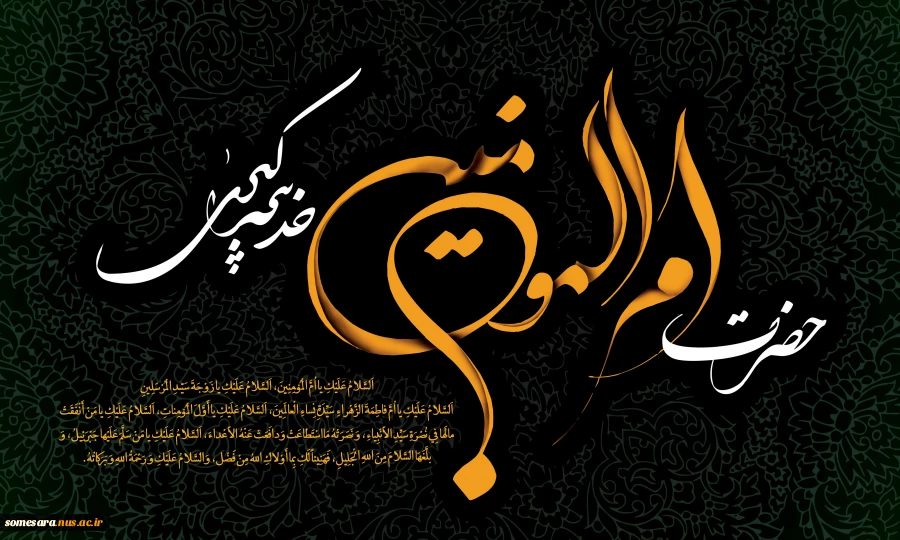 حضرت
ام المومنین
خدیجه کبری
اَلسَّلامُ عَلَيْكِ يا اُمَّ الْمُؤمِنِينَ، اَلسَّلامُ عَلَيْكِ يا زَوْجَةَ سَيِّدِ الْمُرْسَلِينَ
اَلسَّلامُ عَلَيْكِ يا اُمَّ فاطِمَةَ الزَّهْراءِ سَيِّدَةِ نِساءِ الْعالَمِينَ، اَلسَّلامُ عَلَيْكِ يا اَوَّلَ الْمُؤمِناتِ، اَلسَّلامُ عَلَيْكِ يا مَنْ أَنْفَقَتْ
مالَها فِي نُصْرَةِ سَيِّدِ الاَْنْبِياءِ، وَ نَصَرَتْهُ مَا اسْتَطاعَتْ وَ دافَعَتْ عَنْهُ الاَْعْداءَ، اَلسَّلامُ عَلَيْكِ يا مَنْ سَلَّمَ عَلَيْها جَبْرَئِيلُ، وَ
بَلَّغَهَا السَّلامَ مِنَ اللهِ الْجَلِيلِ، فَهَنِيئاً لَكِ بِما أَوْلاكِ اللهُ مِنْ فَضْل، وَ السَّلامُ عَلَيْكِ وَ رَحْمَةُ اللهِ وَ بَرَكاتُهُ.
somesara.nus.ac.ir